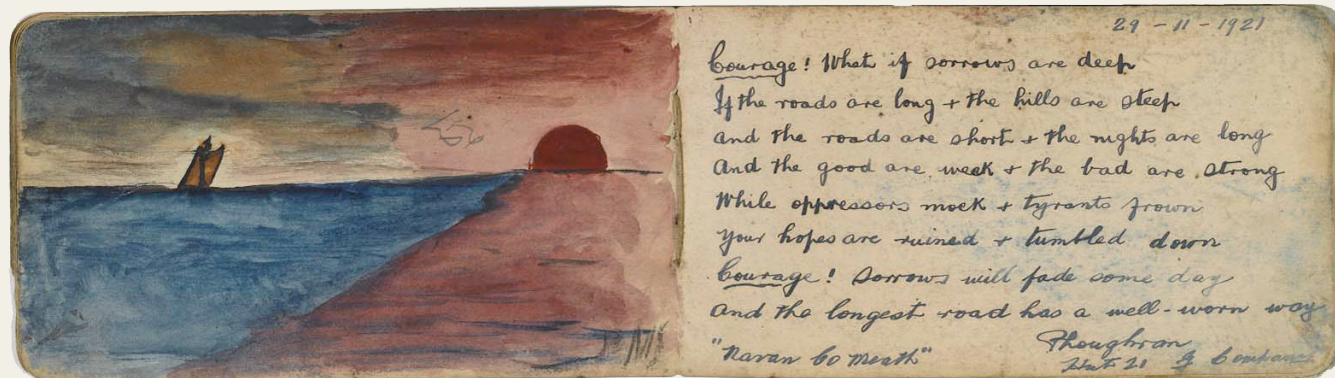 29 - 11 - 1921
Courage! What if sorrows are deep
If the roads are long + the hills are steep
And the roads are short + the nights are long
And the good are week + the bad are strong
While oppressors mock + tyrants frown
Your hopes are ruined + tumbled down
Courage! Sorrows will fade some day
And the longest road has a well-worn way
"Navan Co Meath"
Hut 21 Company